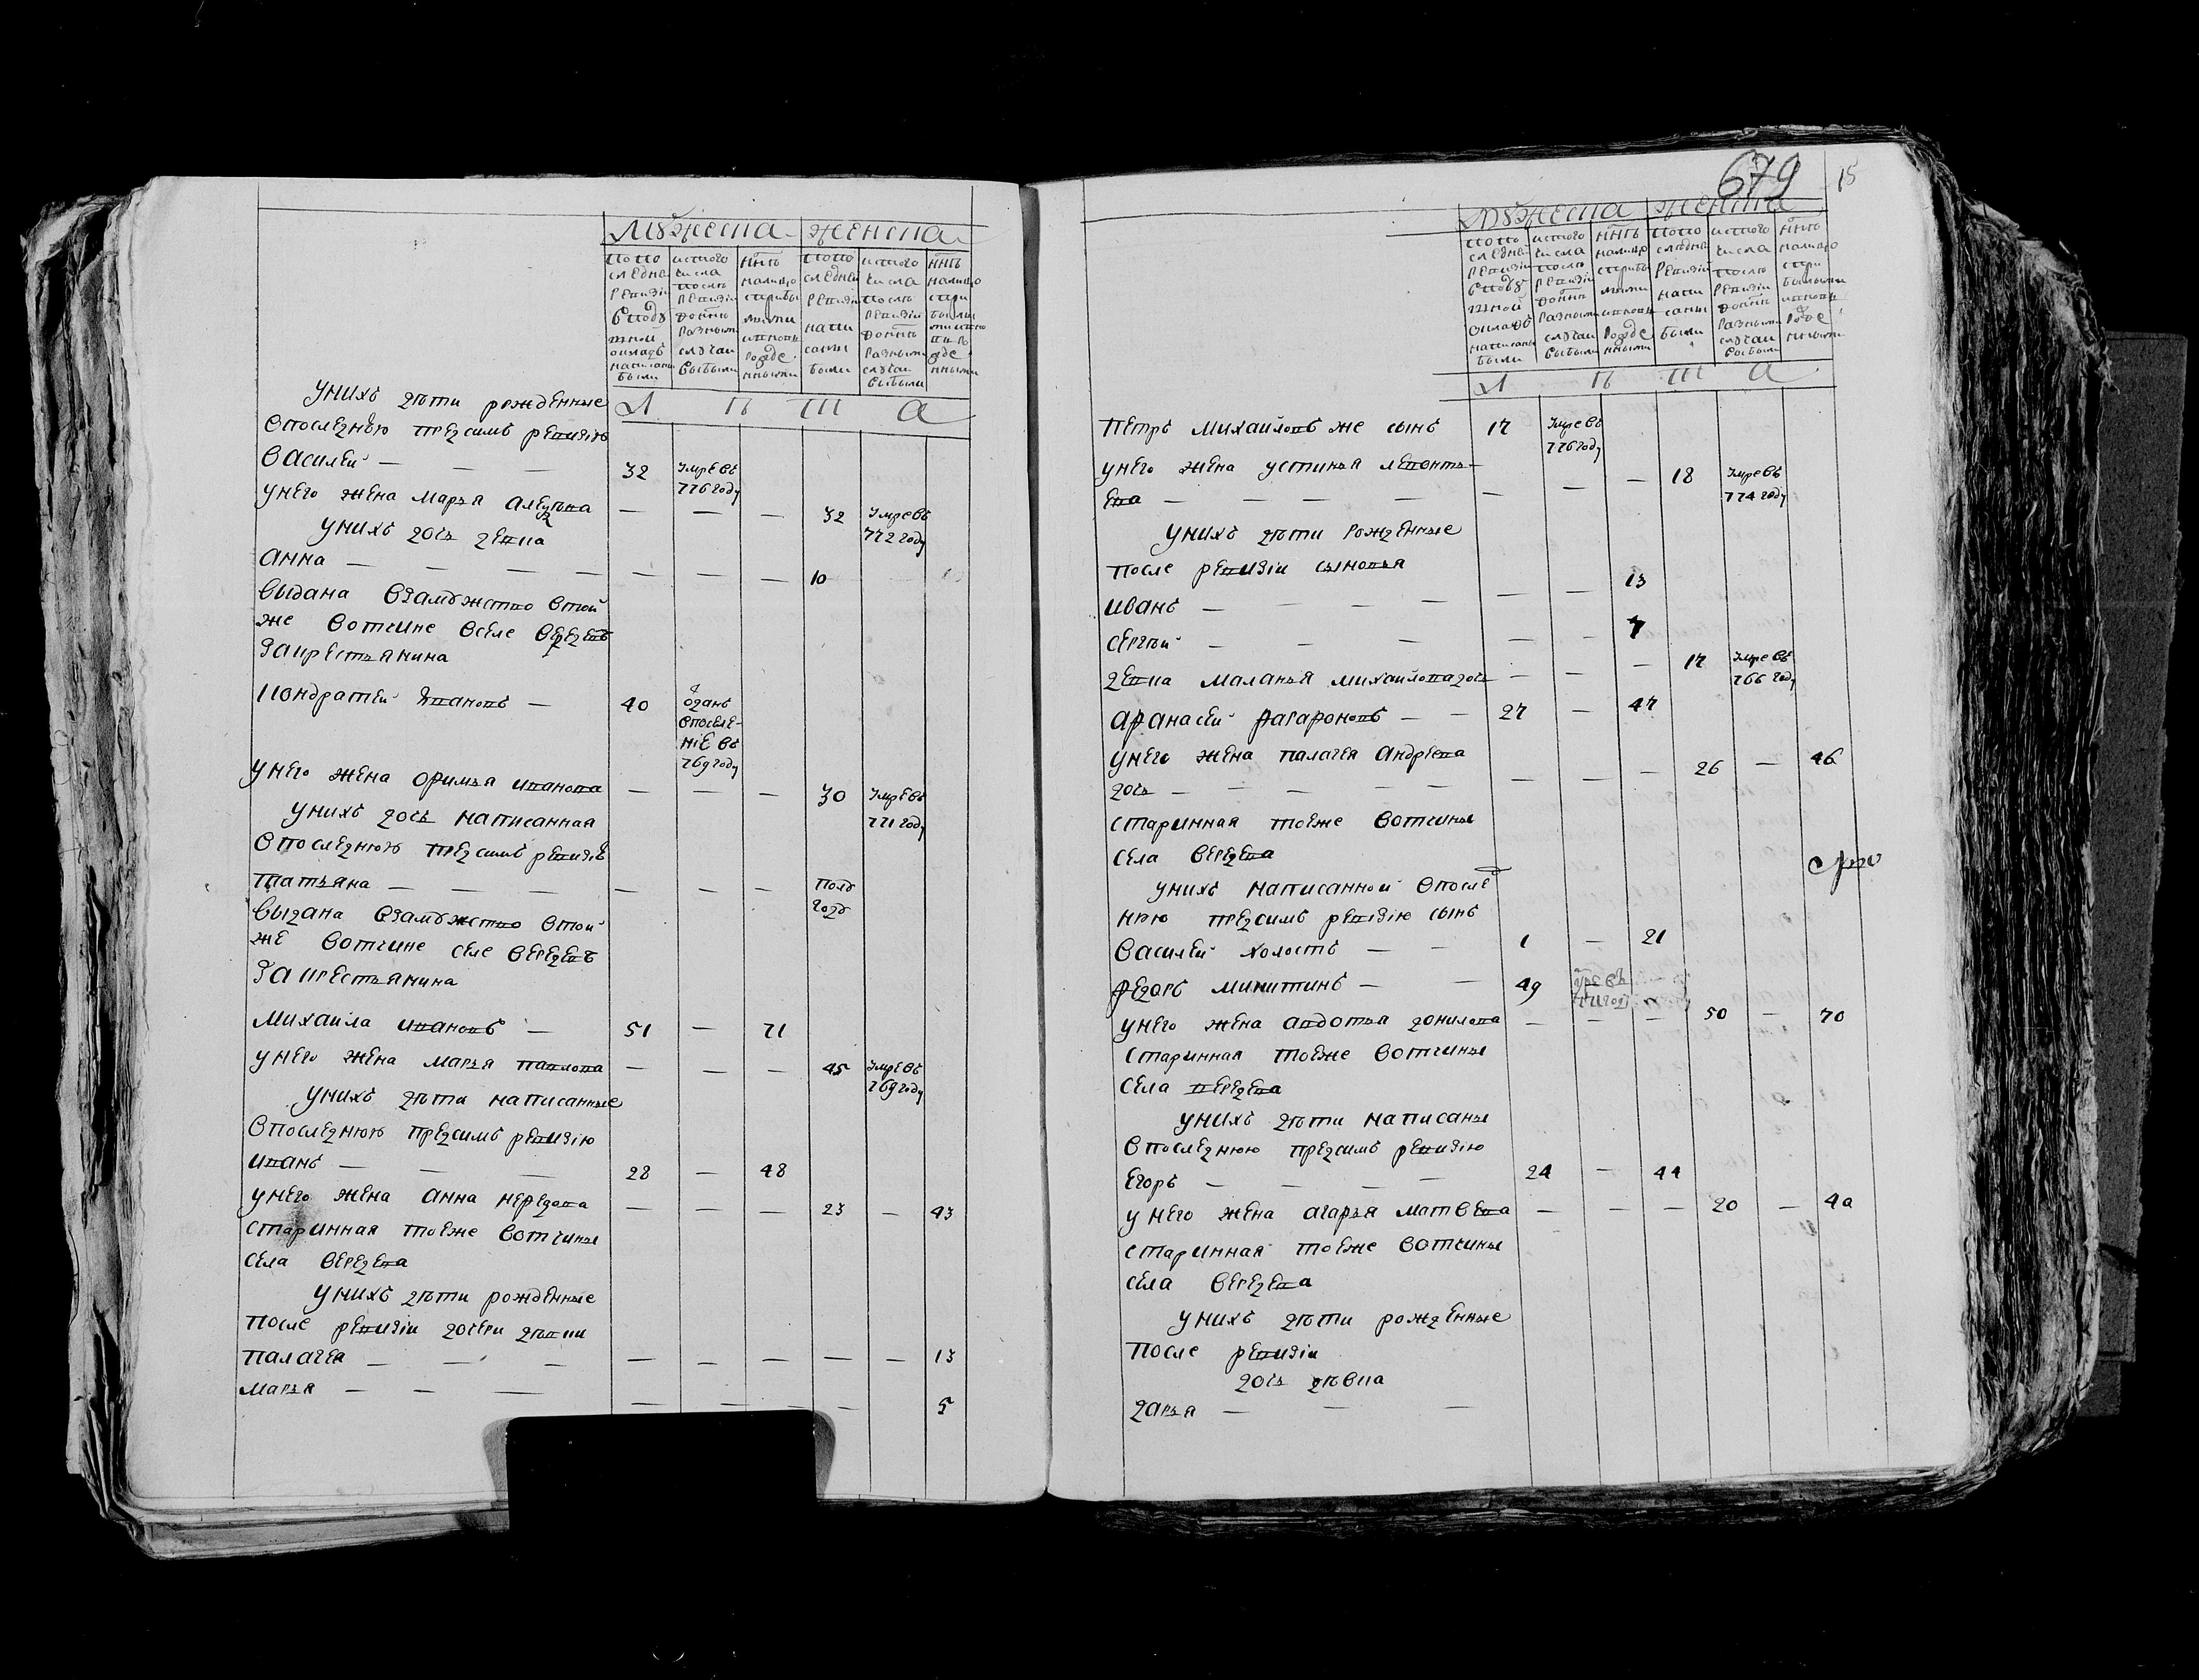 мужеска женска
По по следней ревизии в подушной оклад написаны были
ис того числа после ревизии до ныне разными случаи выбыли
ныне на лицо с прибылыми и вновь рожденными
По по следней ревизии написаны были
ис того числа после ревизии до ныне разными случаи выбыли
ныне на лицо с прибылыми и вновь рожденными
Л Ѣ Т А
У нихъ дѣти рожденные
в последнею пред симъ ревизию
Василей — — — 32 Умре въ 776 году
у него жена Марья — — — 32 Умре въ 772 году
У нихъ дочь девка
Анна — — — — — — — 10
выдана в замужство в той
же вотчине в селе Вередеве
за крестьянина
Кондратей Ивановъ — 40 Отданъ в поселение въ 769 году
у него жена Офимья Иванова — — — 30 Умре въ 771 году
У нихъ дочь написанная
в последнюю пред симъ ревизию
Татьяна — — — — — — Полу году
выдана в замужство в той
же вотчине селе Вередеве
за крестьянина
Михаила Ивановъ — 51 — 71
у него жена Марья Павлова — — — 45 Умре въ 769 году
У нихъ дѣти написанные
в последнюю пред симъ ревизию
Иванъ — — — 28 — 48
у него жена Анна Нефедова — — — 23 — 43
старинная тоеже вотчины
села Вередева
У нихъ дѣти рожденные
после ревизии дочери дѣвки
Палагея — — — — — — — — 13
Марья — — — — — — — 5
679 15
мужеска женска
По по следней ревизии в подушной окладъ написаны были
ис того числа после ревизии до ныне разными случаи выбыли
ныне на лицо с прибылыми и вновь рожденными
По по следней ревизии написаны были
ис того числа после ревизии до ныне разными случаи выбыли
ныне на лицо с прибылыми и вновь рожденными
Л Ѣ Т А
Петръ Михайловъ же сынъ 17 Умре въ 776 году
у него жена Устинья Леонть-
ева — — — — — — — 18 Умре въ 774 году
У нихъ дѣти рожденные
после ревизии сыновья
Иванъ — — — — — — 13
Сергѣй — — — — 7
девка Маланья Михайлова дочь — — — 17 Умре въ 766 году
Афанасей Фарафоновъ — — 27 — 47
у него жена Палагея Андреева
дочь — — — — — — — — 26 — 46
старинная тоеже вотчины
села Вередева
у нихъ написанной в послед
нюю пред симъ ревизию сынъ
Василей холостъ — — 1 — 21
Федоръ Микитинъ — — 49
у него жена Авдотья Донилова — — — 50 — 70
старинная тоеже вотчины
села Вередева
У нихъ дѣти написаны
в последнюю пред симъ ревизию
Егоръ — — — — 24 — 44
у него жена Агафья Матвева — — — 20 — 40
старинная тоеже вотчины
села Вередева
У нихъ дѣти рожденные
после ревизии
дочь дѣвка
Дарья — — —